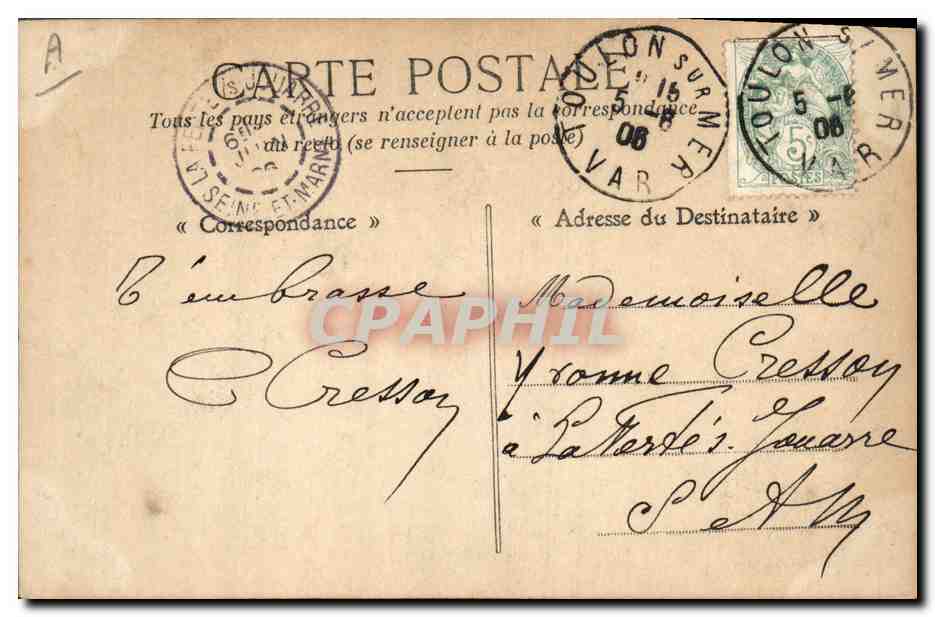 A
CARTE POSTALE
Tous les pays étrangers n'acceptent pas la correspondance
au recto (se renseigner à la poste)
LA FERTÉ S. JOUARRE
6E
JUIN
06
SEINE-ET-MARNE
TOULON SUR MER
15
5 -6
06
VAR
TOULON S/ MER
5 -6
06
VAR
5c
POSTES
« Correspondance »
« Adresse du Destinataire »
T'embrasse
C Cresson
Mademoiselle
Yvonne Cresson
à La Ferté s. Jouarre
S &M
CPAPHIL